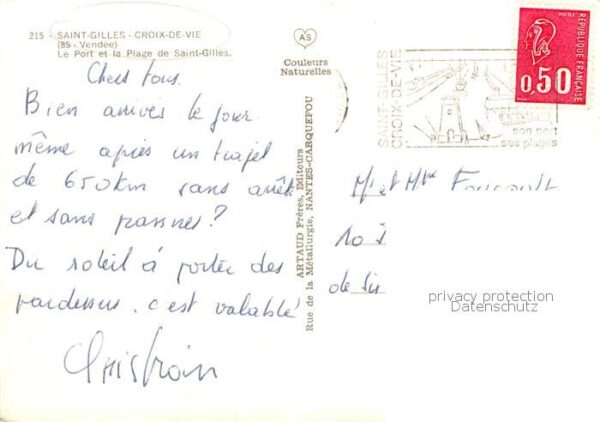 215 - SAINT-GILLES - CROIX-DE-VIE
(85 - Vendée)
Le Port et la Plage de Saint-Gilles.
Chers tous.
Bien arrivés le jour
même après un trajet
de 650km sans arrêt
et sans pannes?
Du soleil à porter des
pardessus. c'est valable
Christian
AS
Couleurs
Naturelles
ARTAUD Frères, Editeurs
Rue de la Métallurgie, NANTES-CARQUEFOU
SAINT-GILLES
CROIX-DE-VIE
son port
ses plages
POSTES
REPUBLIQUE FRANÇAISE
0,50
Mr et Mme
10
de
privacy protection
Datenschutz